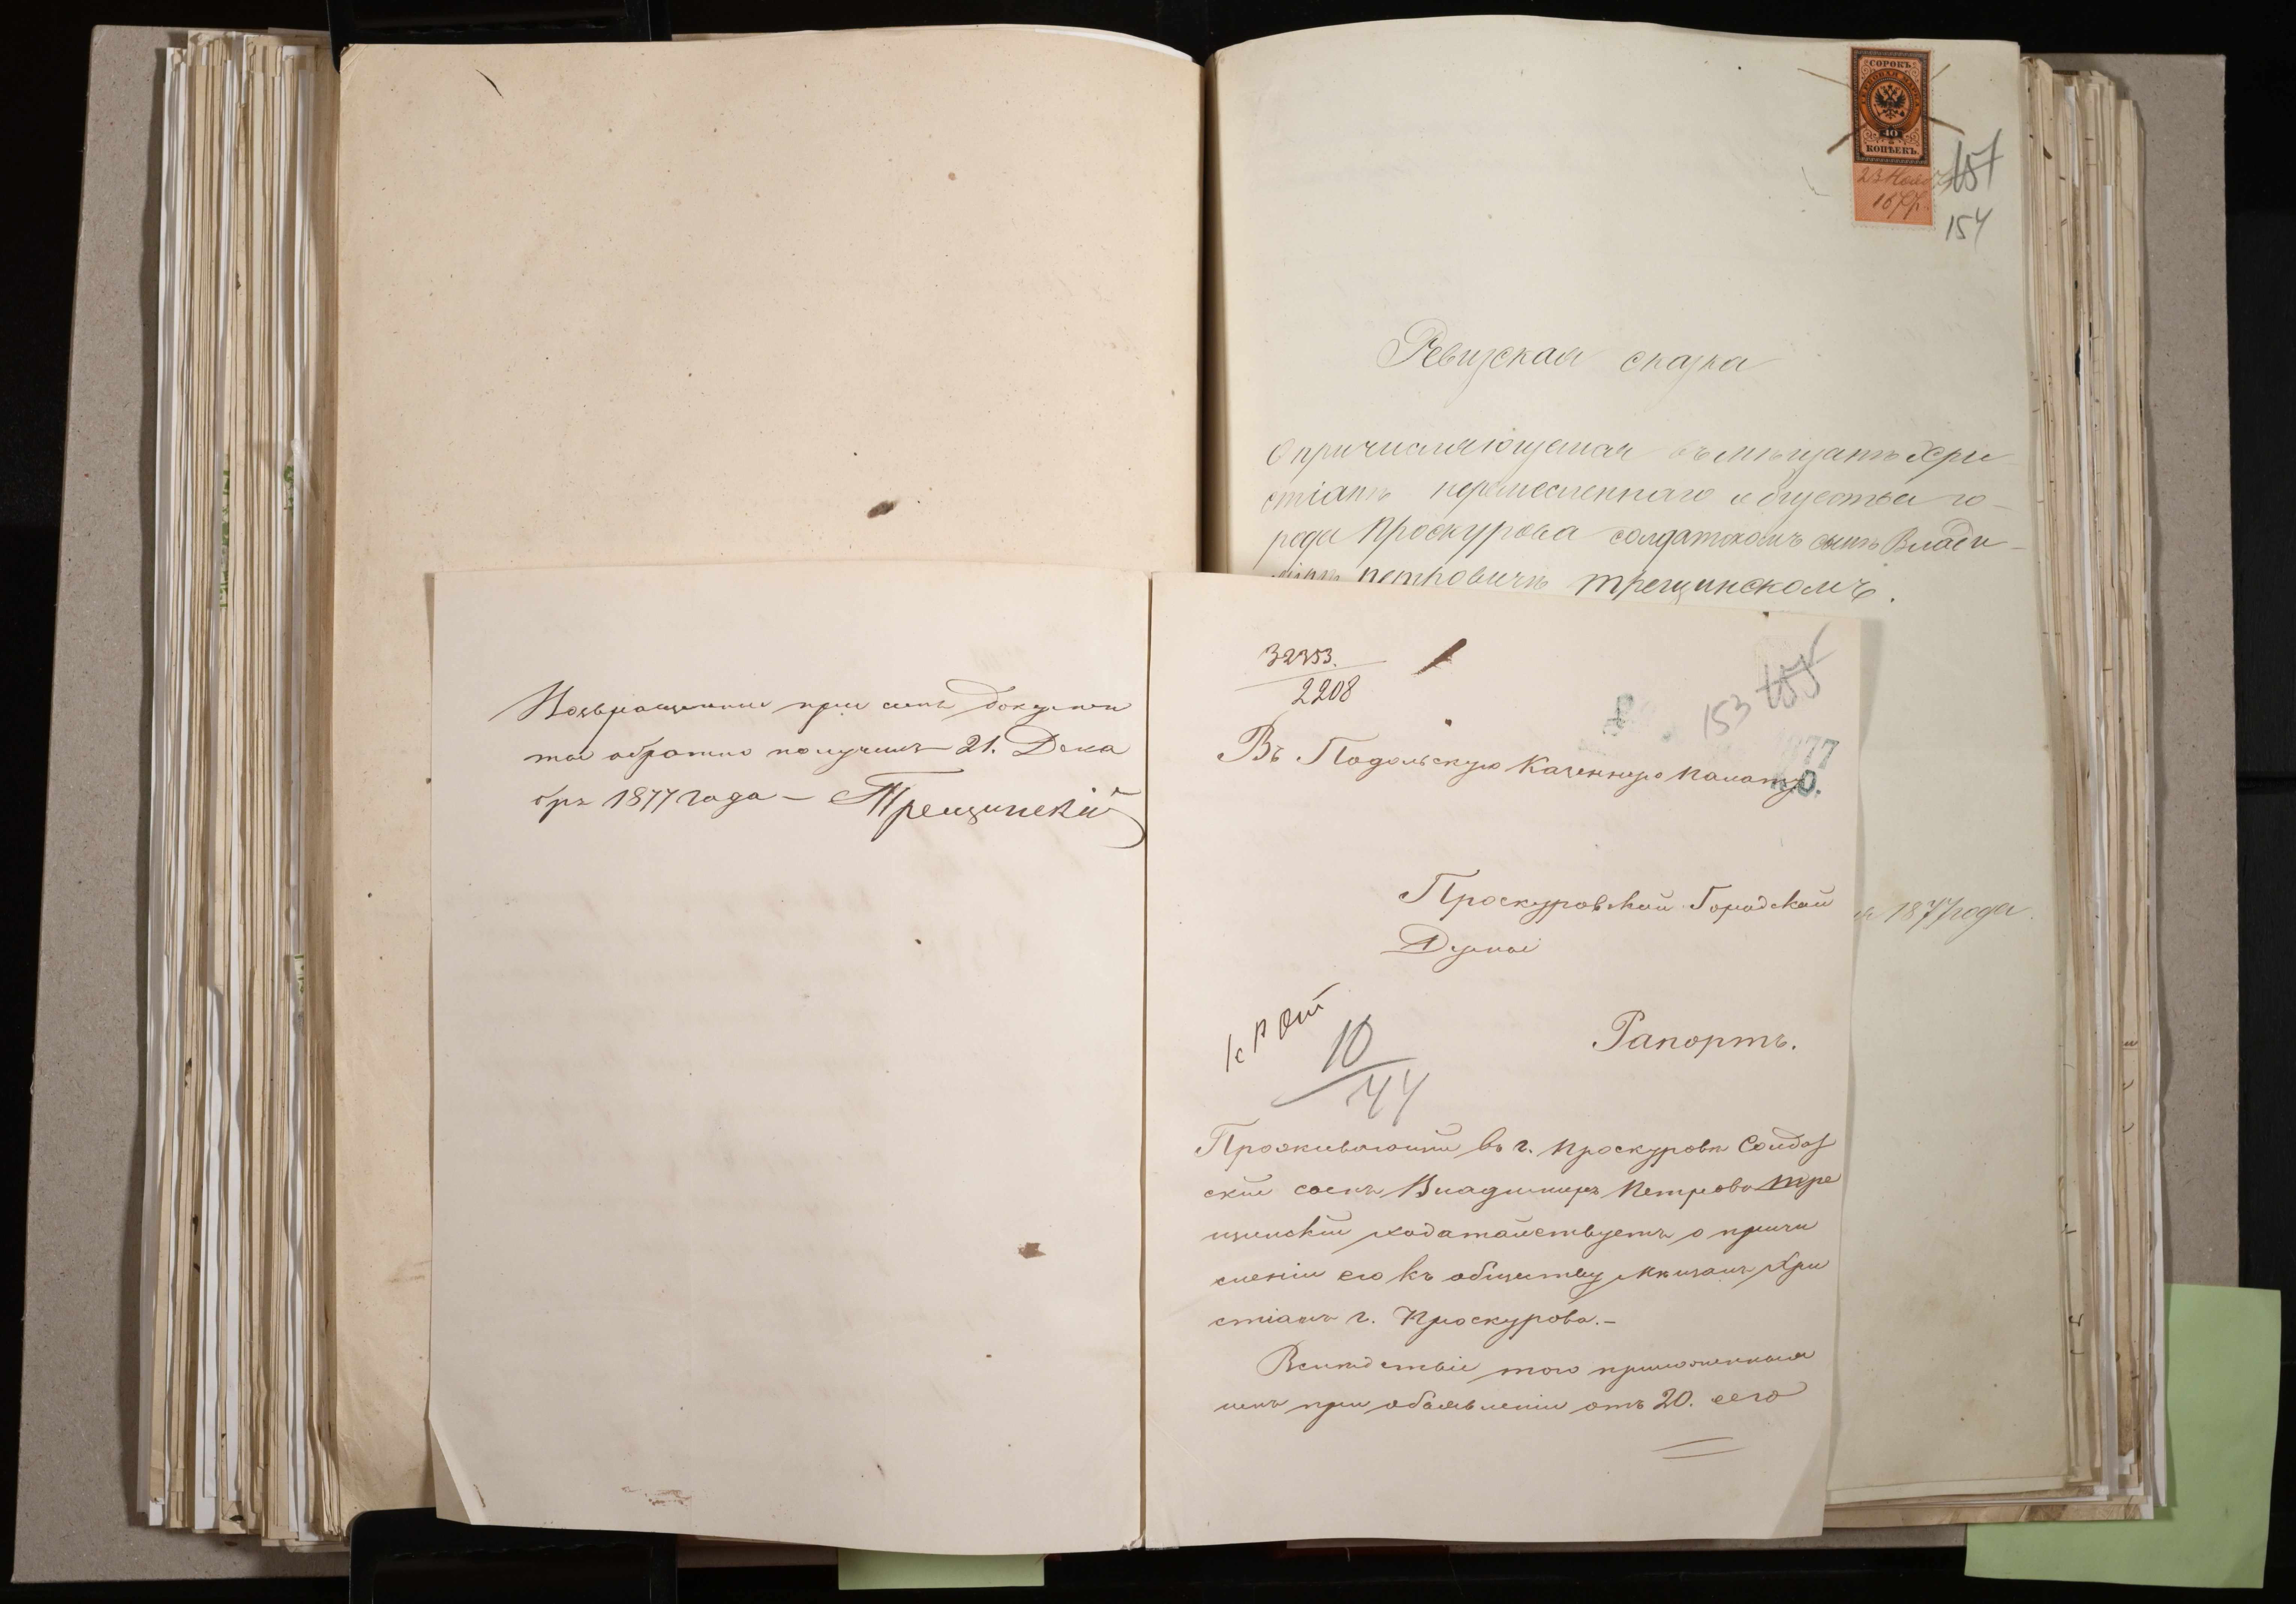 СОРОКЪ
ГЕРБОВАЯ МАРКА
40
КОПѢЕКЪ.
23 Нояб
1877
157
154
Ревизская сказка
О причисляющемся въ мѣщане Хри
стіане ремесленнаго общества го-
рода Проскурова солдатскомъ сынѣ Влади-
мірѣ Петровичѣ Трещинскомъ.
1877 года.
Возвращенные при семъ докумен
ты обратно получилъ 21. Дека
бря 1877 года – Трещинскій
32353.
2208
153 155
1877
Въ Подольскую Казенную Палату
Проскуровской Городской
Думы
Рапортъ.
10
44
Проживающій въ г. Проскуровѣ Солдат
скій сынъ Владимиръ Петровъ Тре
щинскій ходатайствуетъ о причи
сленіи его къ обществу Мѣщанъ Хри
стіанъ г. Проскурова.–
Вслѣдствіе того приложенныя
имъ при объявленіи отъ 20. сего